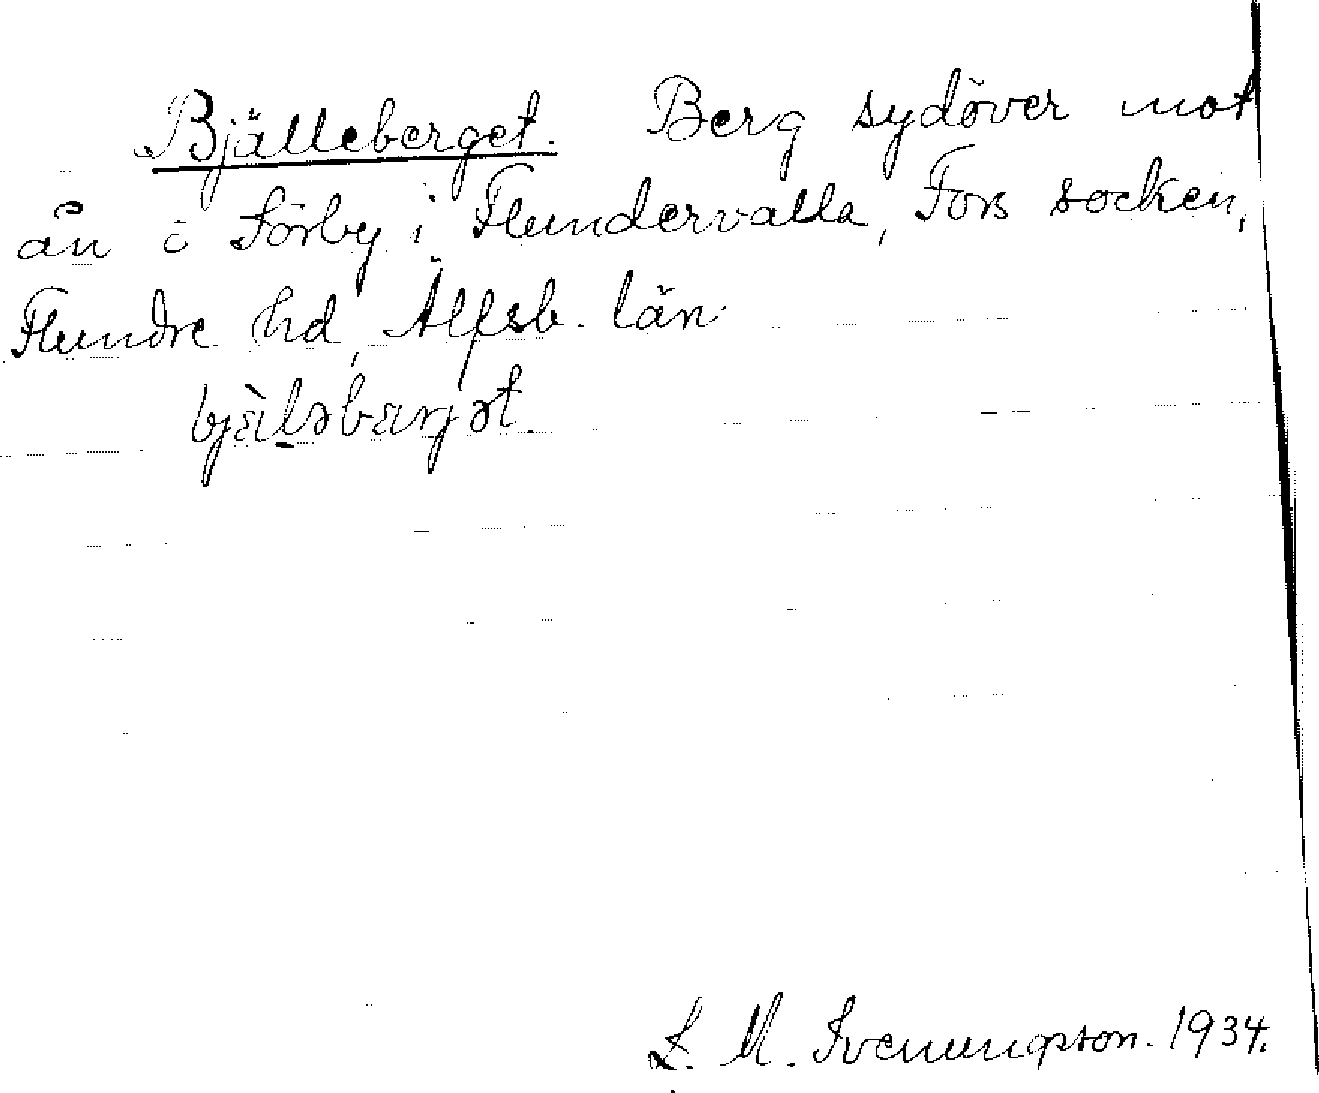 Bjälleberget. Berg sydöver mot
ån å Sörby i Flundervalla, Fors socken,
Flundre hd, Älfsb. län
bjæ̀ləbærjət.
S. M. Svenungsson. 1934.